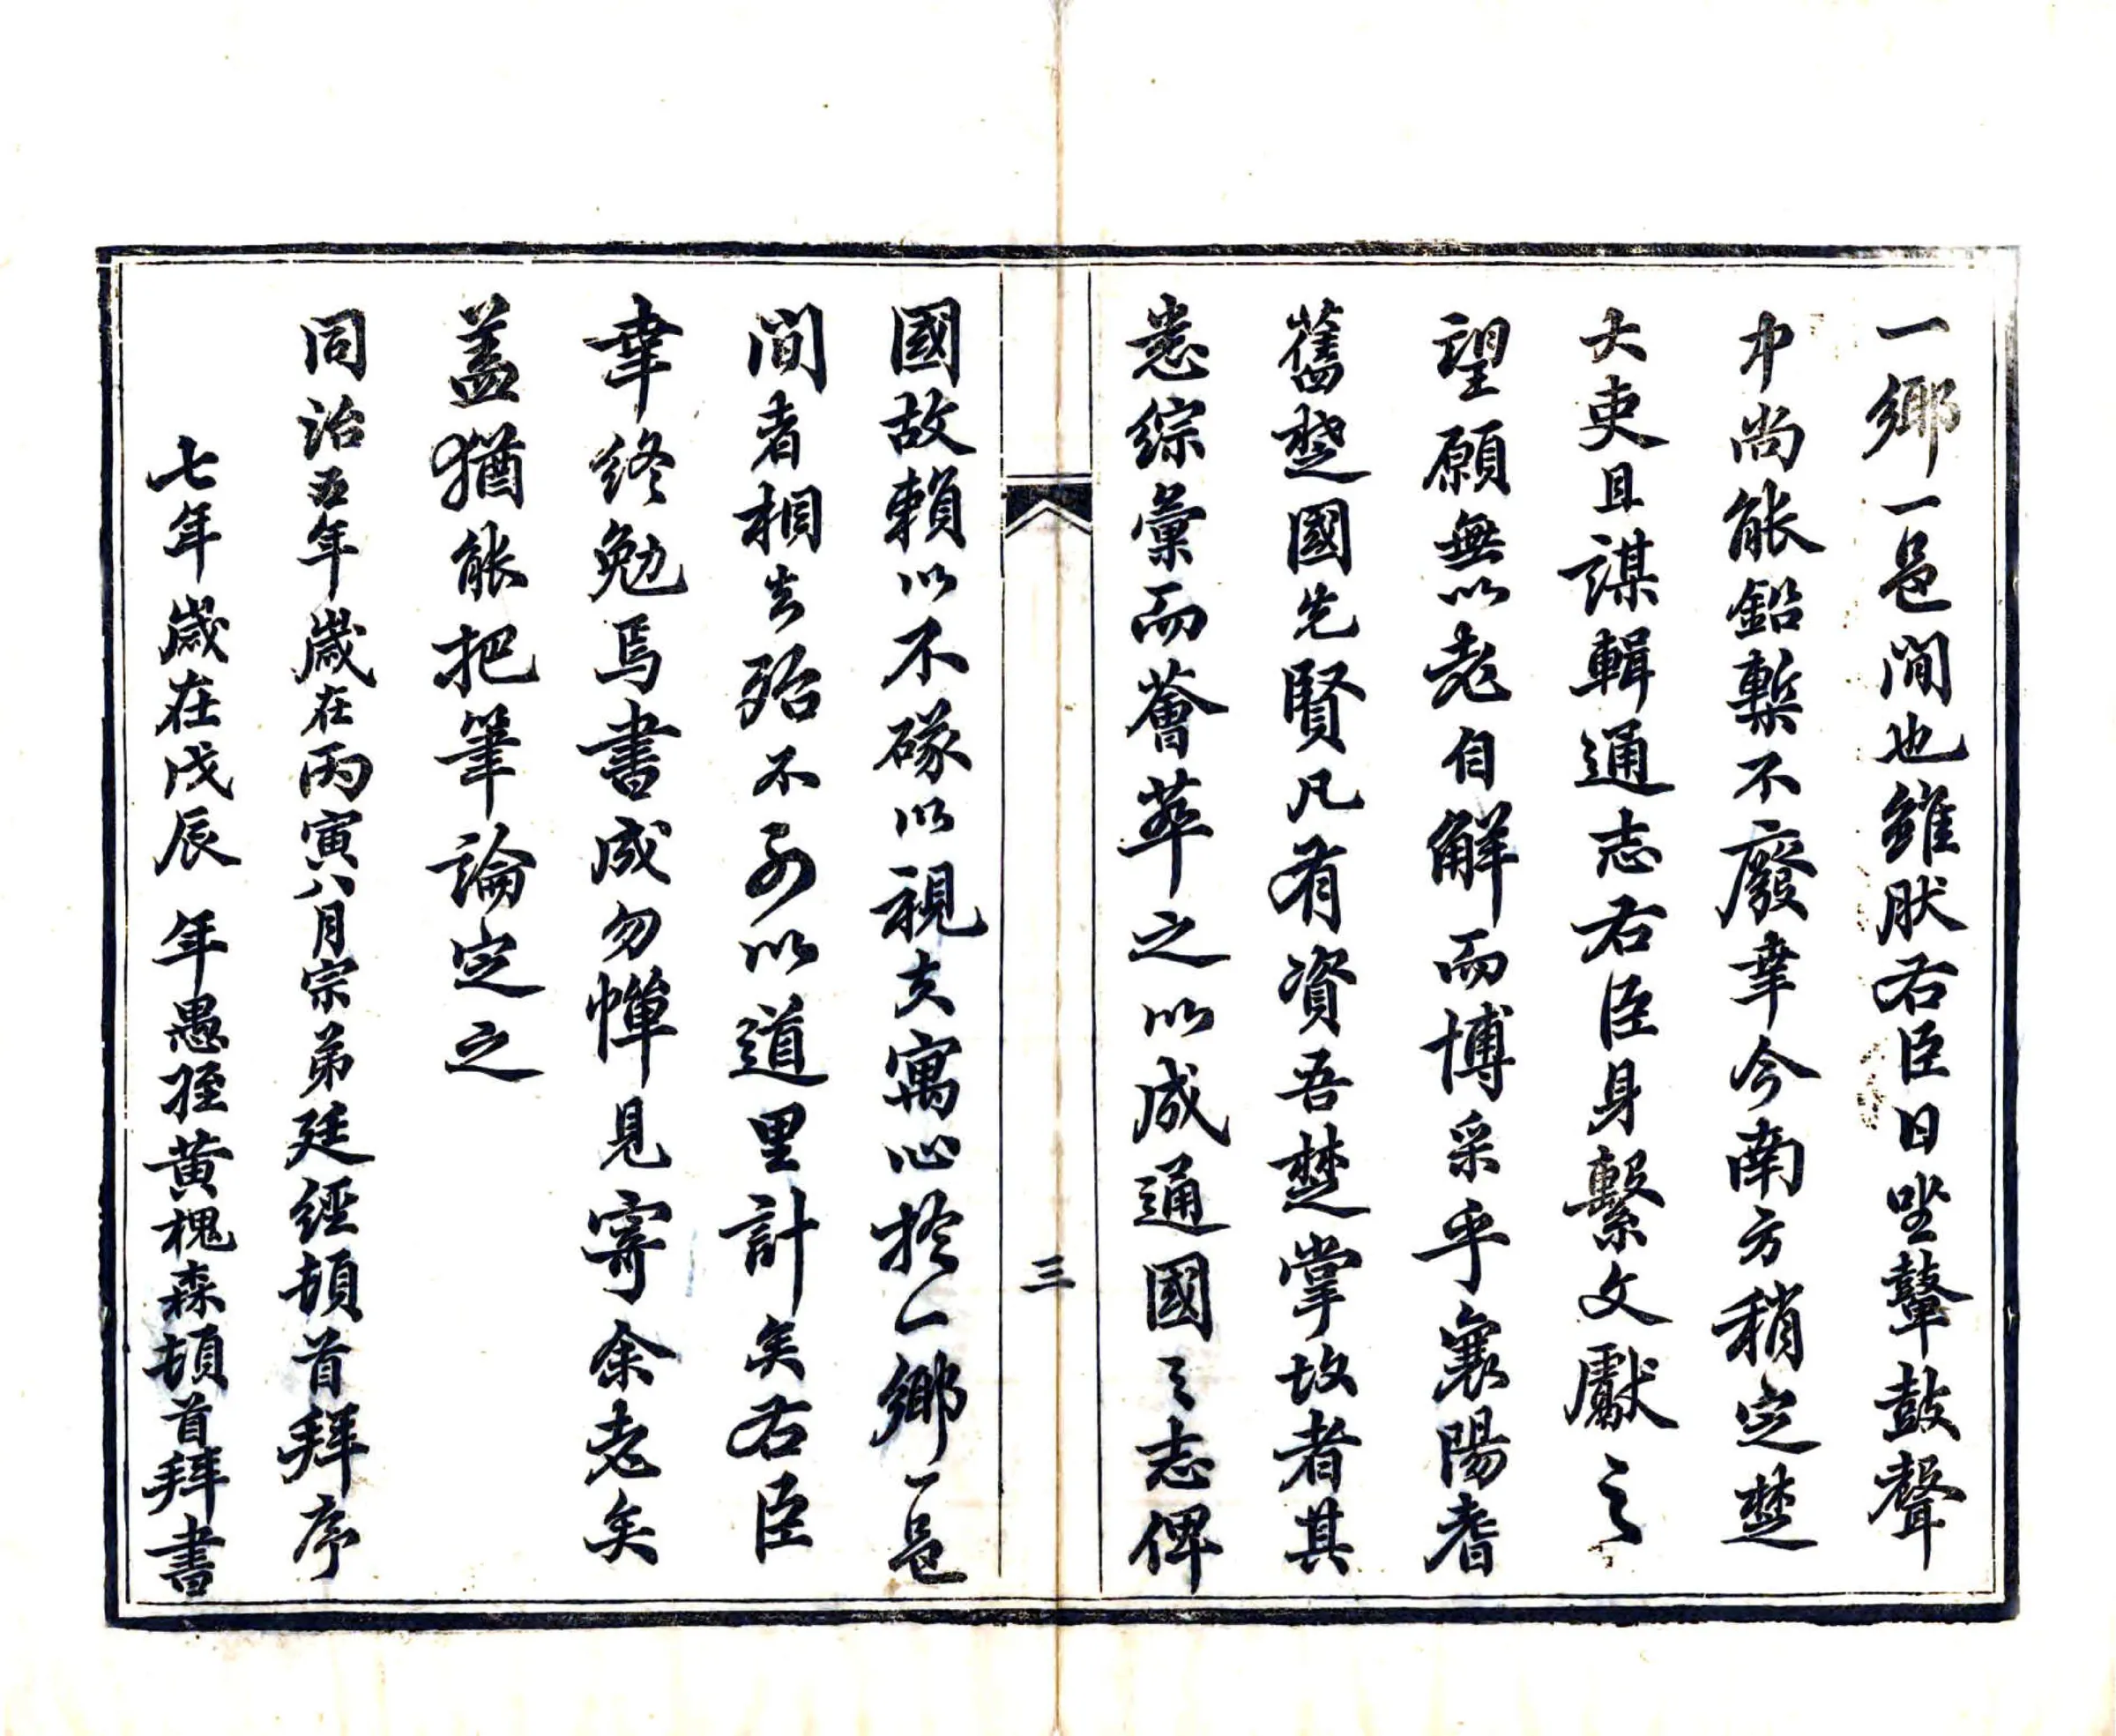 一鄉一邑間也雖肰右臣日坐鼙鼓聲
中尚能鉛槧不廢幸今南方稍定楚
大吏且謀輯通志右臣身繫文獻之
望願無以老自解而博采乎襄陽耆
舊楚國先賢凡有資吾楚掌故者其
悉綜彙而薈萃之以成通國之志俾
三
國故賴以不隊以視夫寓心於一鄉一邑
間者相去殆不可以道里計矣右臣
幸終勉焉書成勿憚見寄余老矣
蓋猶能把筆論定之
同治五年歲在丙寅八月宗弟廷經頓首拜序
七年歲在戊辰 年愚姪黃槐森頓首拜書